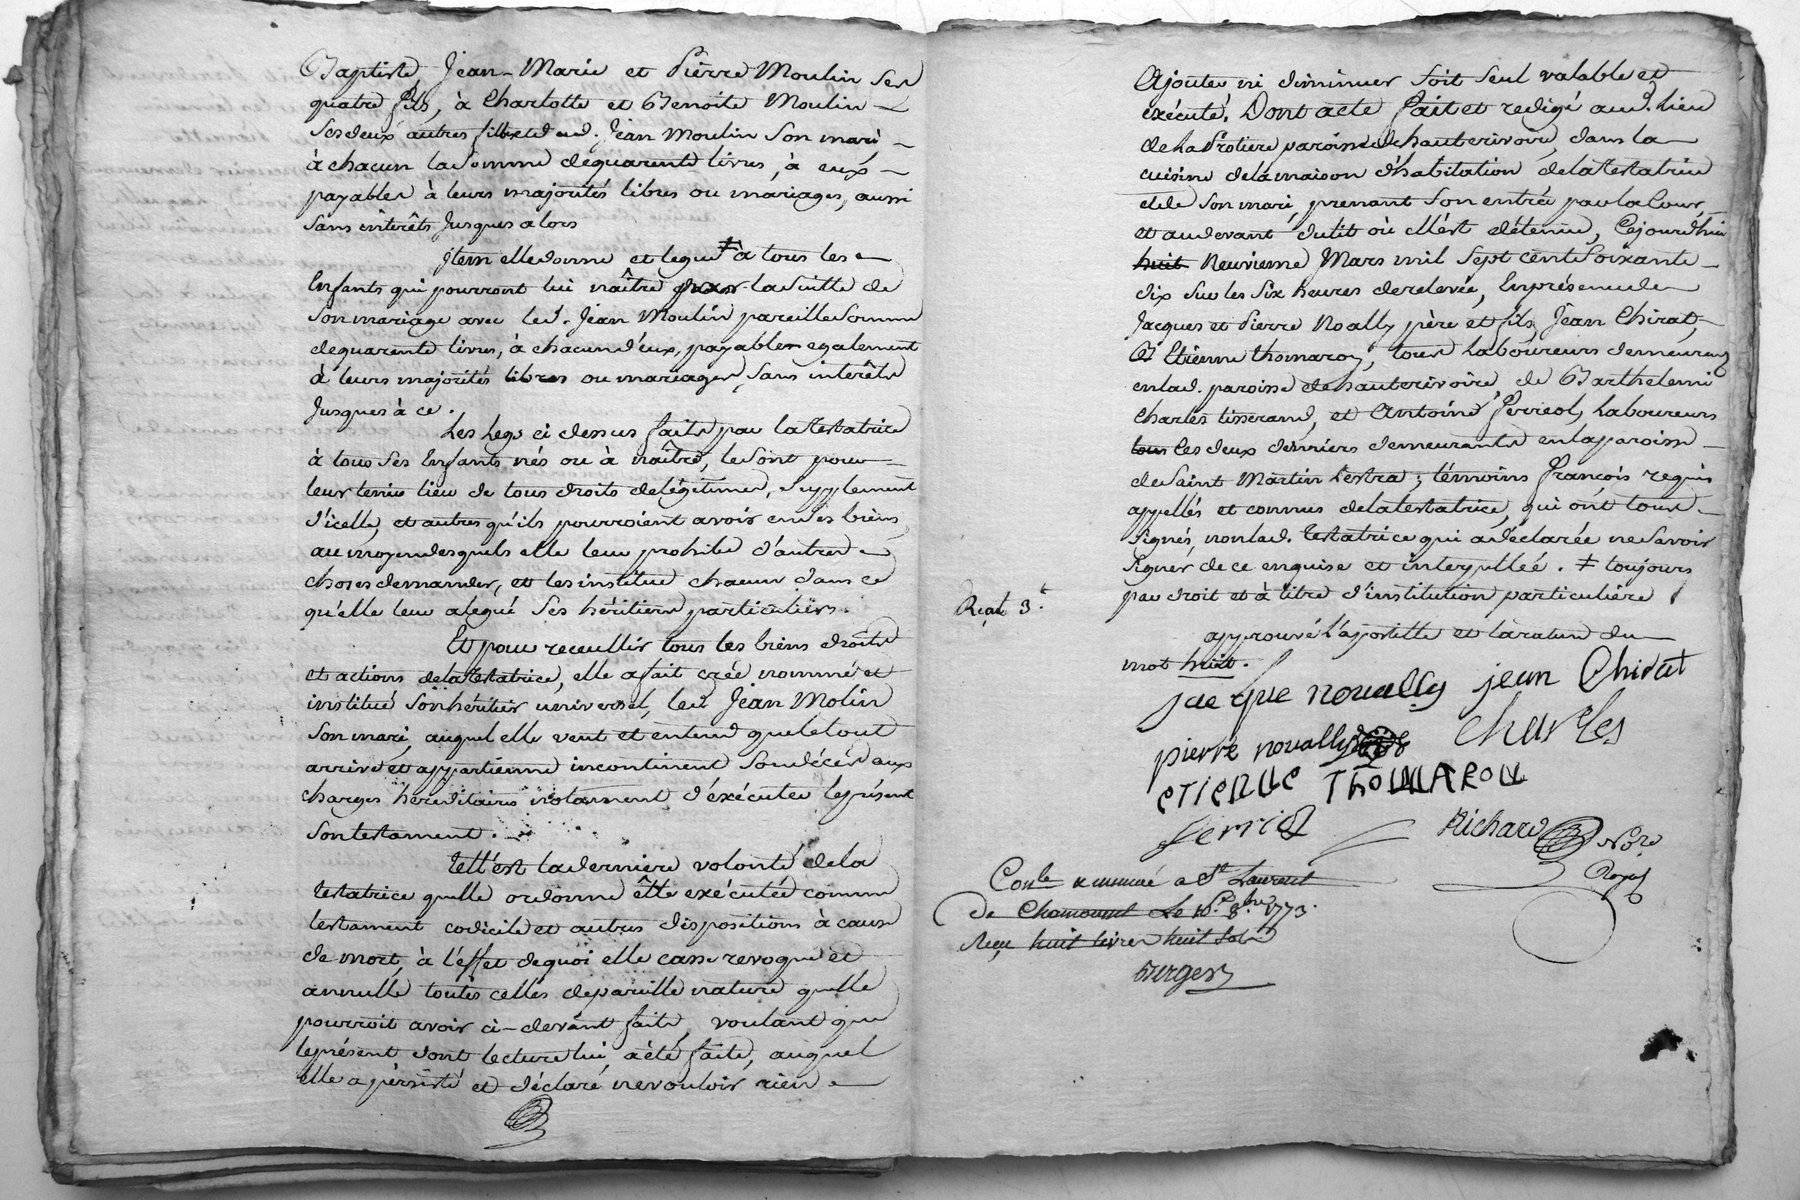 Baptiste, Jean-Marie et Pierre Moulin ses
quatre fils, à Charlotte et Benoite Moulin
ses deux autres filles et dud. Jean Moulin son mari
à chacun la somme de quarante livres, à eux
payables à leurs majorités libres ou mariages, aussi
sans intérêts jusques alors
Item elle donne et legue ≠ à tous les
Enfants qui pourront lui naître pour la suitte de
son mariage avec led. Jean Moulin pareille somme
de quarante livres, à chacun d'eux, payables egalement
à leurs majorités libres ou mariages, sans intérêts
jusques à ce.
Les Legs ci dessus faits par la testatrice
à tous ses Enfants nés ou à naître, le sont pour
leur tenir lieu de tous droits de légitimes, supplement
d'icelle, et autres qu'ils pourroient avoir en des biens,
au moyen desquels elle leur prohibe d'autres
choses demander, et les institue chacun dans ce
qu'elle leur a legué ses héritiers particuliers.
Et pour recueillir tous les biens droits
et actions de la testatrice, elle a fait créé, nommé et
institué son héritier universel, led. Jean Molin
son mari, auquel elle veut et entend que le tout
arrive et appartienne incontinent son décés aux
charges héréditaires notamment d'exécuter le présent
son testament.
Tell'est la derniere volonté de la
testatrice qu'elle ordonne être exécutée comme
testament codicile et autres dispositions à cause
de mort, à l'effet de quoi elle casse revoque et
annulle toutes celles de pareille nature qu'elle
pourroit avoir ci-devant faite, voulant que
le présent dont lecture lui a été faite, auquel
elle a persisté et déclaré ne vouloir rien
Ajouter ni diminuer soit seul valable et
exécuté. Dont acte fait et redigé aud. lieu
de La Protiere paroisse de hauterivoire, dans la
cuisine de la maison d'habitation de la testatrice
et de son mari, prenant son entrée par la Cour,
et au devant du lit où ell'est détenue, Cejourd'hui
huit Neuvieme Mars mil sept cent soixante
dix sur les six heures de relevée, En présence de
Jacques et Pierre Noally père et fils, Jean Chirat,
Et Etienne thomarou, tous Laboureurs demeurant
en lad. paroisse de hauterivoire, de Barthelemi
Charles tisserand, et Antoine Ferreol, Laboureurs
tous les deux derniers demeurants en la paroisse
de Saint Martin Lestra; témoins françois requis
appellés et connus de la testatrice, qui ont tous
signés, non lad. testatrice qui a déclarée ne savoir
signer de ce enquise et interpellée. ≠ toujours
par droit et à titre d'institution particulière
approuvé l'apostille et la rature du
mot huit.
jacque noually jean Chirat
pierre noually Charles
eTienne ThoMAROU
ferriol
Richard Nore
Royal
Conle a St Laurent
De Chamousset Le 16e 8bre 1773.
Reçu huit livres huit sols